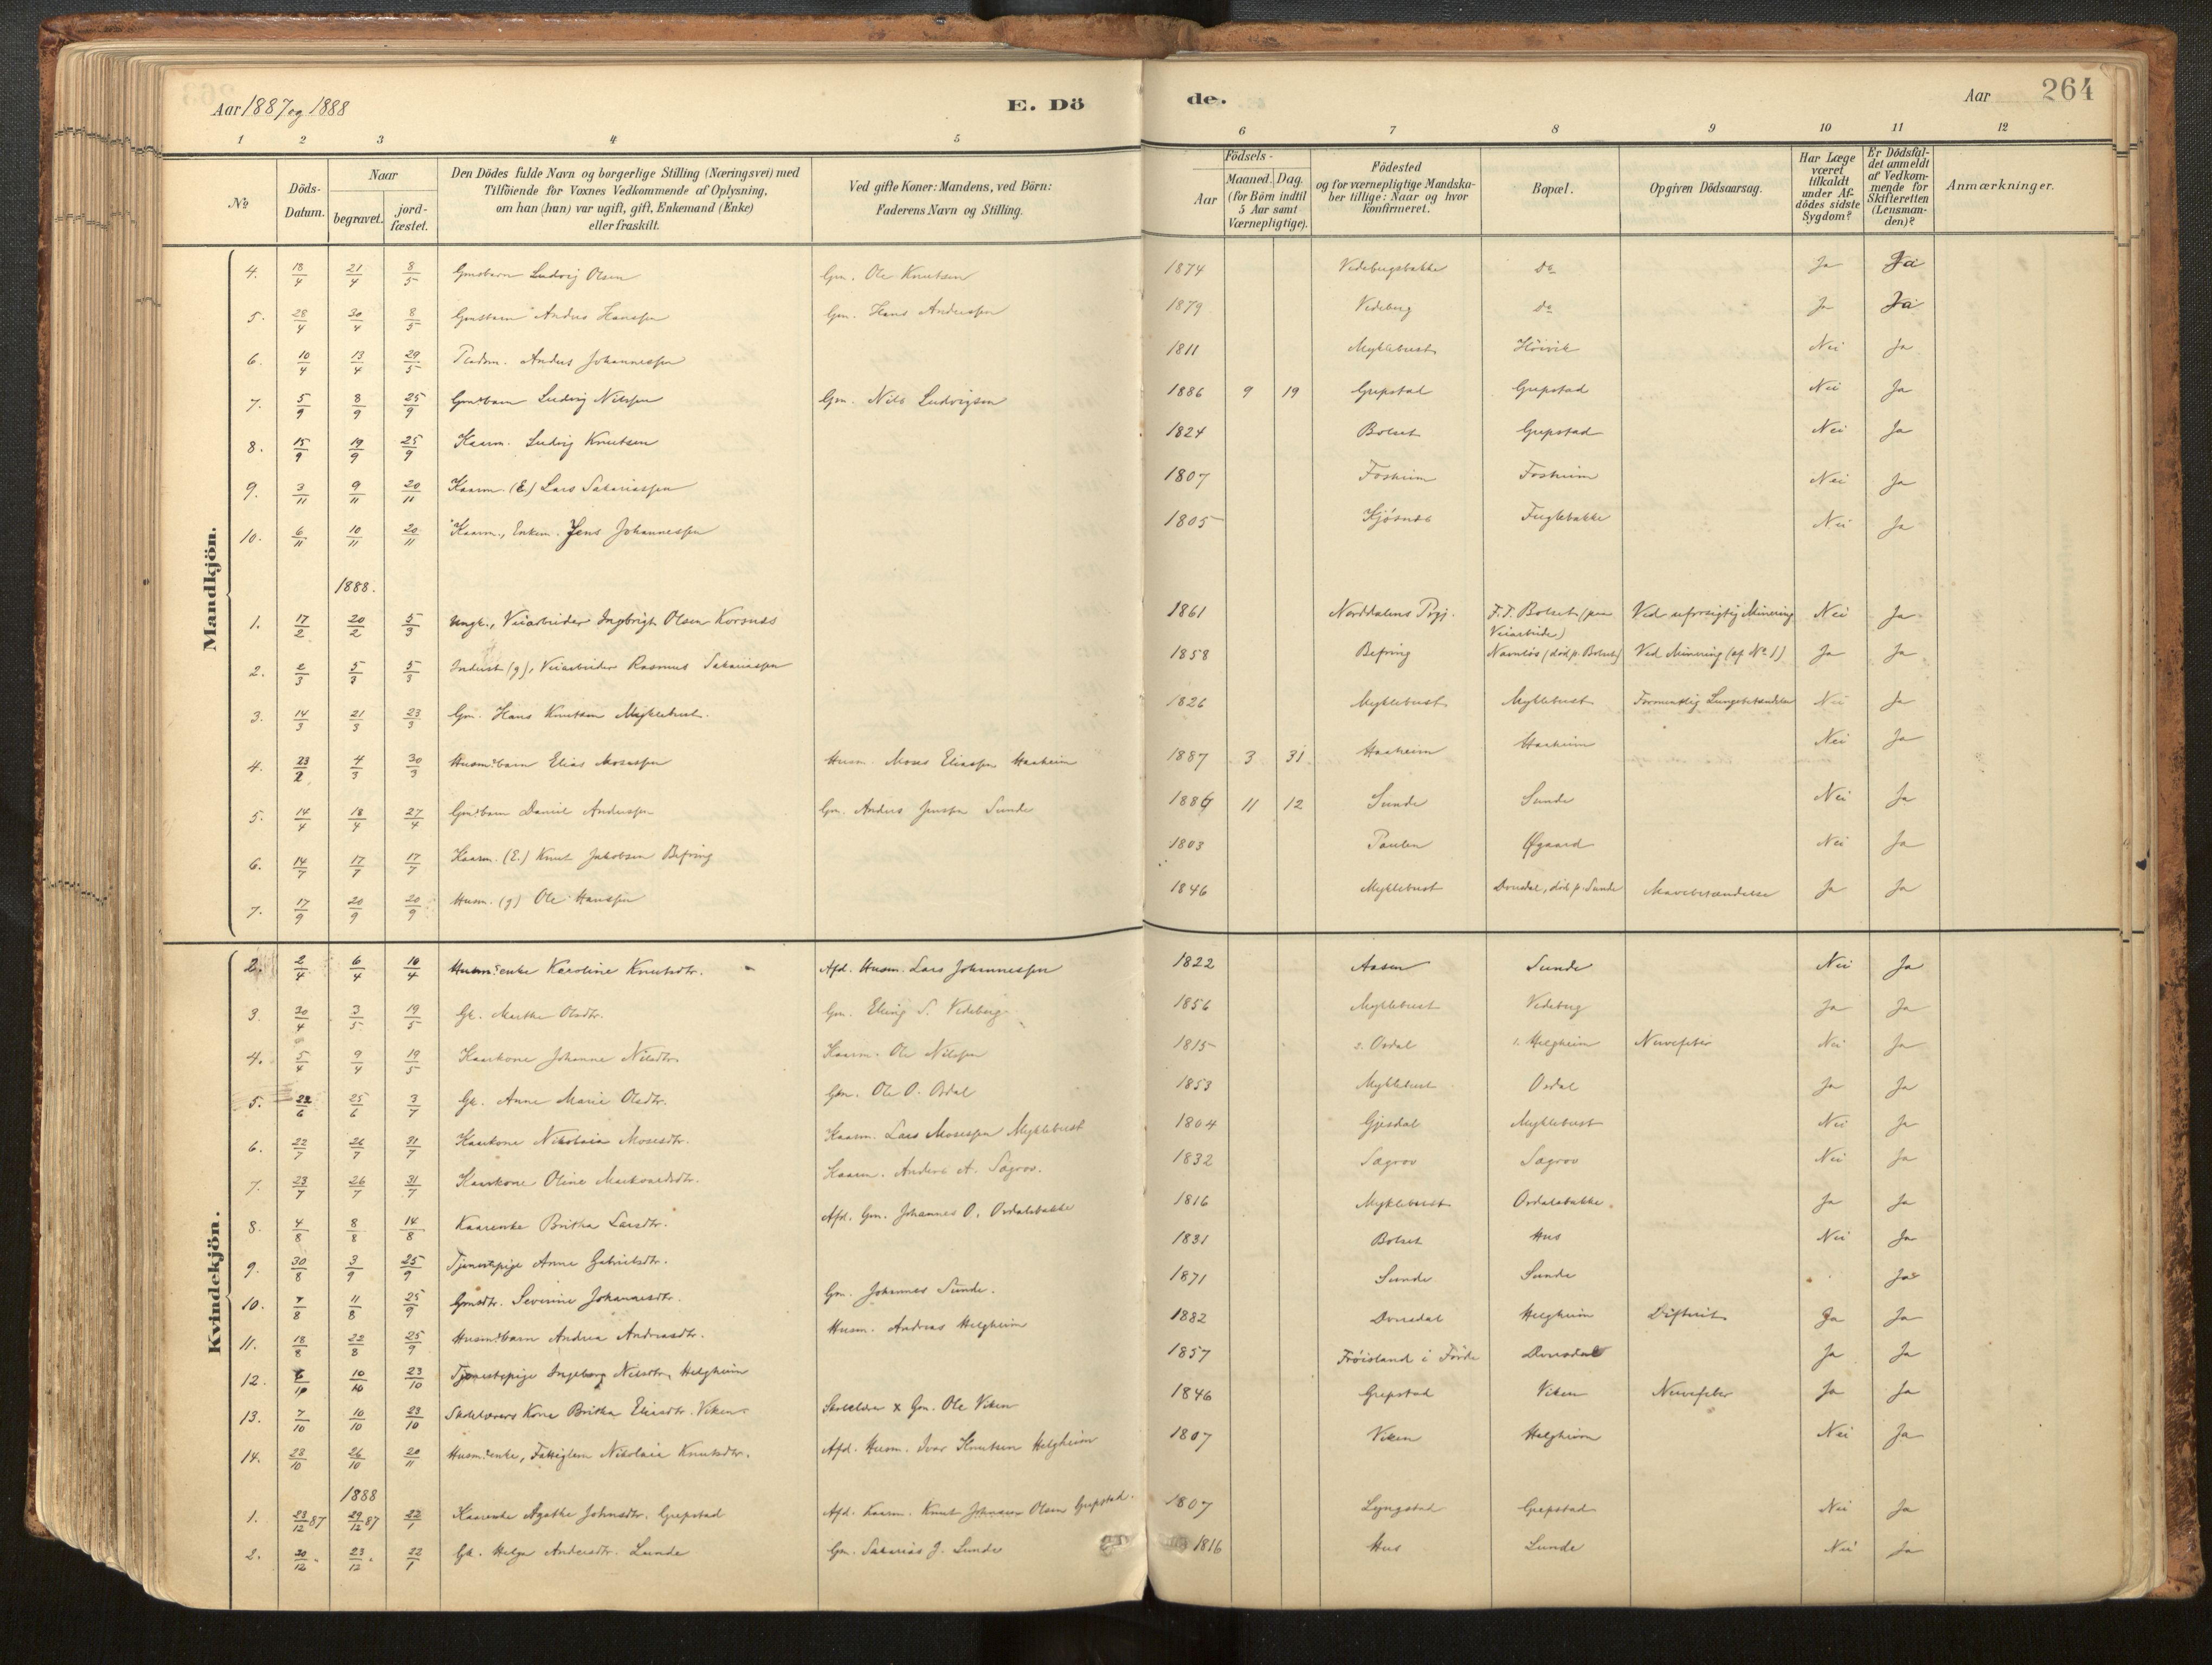 Aar 1887 og 1888
E. Döde.
Aar
264
1 2 3 4 5 6 7 8 9 10 11 12
No
Döds-Datum.
Naar
begravet.
jordfæstet.
Den Dödes fulde Navn og borgerlige Stilling (Næringsvei) med
Tilföiende for Voxnes Vedkommende af Oplysning,
om han (hun) var ugift, gift, Enkemand (Enke)
eller fraskilt.
Ved gifte Koner: Mandens, ved Börn:
Faderens Navn og Stilling.
Födsels-
Aar
Maaned. Dag.
(for Börn indtil
5 Aar samt
Værnepligtige).
Födested
og for værnepligtige Mandska-
ber tillige: Naar og hvor
konfirmeret.
Bopæl.
Opgiven Dödsaarsag.
Har Læge
været
tilkaldt
under Af-
dödes sidste
Sygdom?
Er Dödsfal-
det anmeldt
af Vedkom-
mende for
Skifteretten
(Lensman-
den)?
Anmærkninger.
Mandkjön.
4. 18/4 21/4 8/5 Gmsbarn Ludvig Olsen Gm. Ole Knutsen 1874 Vedebergsbakke do Ja Ja
5. 28/4 30/4 8/5 Gmsbarn Anders Hanssen Gm. Hans Anderssen 1879 Vedeberg do Ja Ja
6. 10/4 13/4 29/5 Pladsm. Anders Johannessen 1811 Myklebust Höivik Nei Ja
7. 5/9 8/9 25/9 Gmsbarn Ludvig Nilssen Gm. Nils Ludvigsen 1886 9 19 Grepstad Grepstad Nei Ja
8. 15/9 19/9 25/9 Kaarm. Ludvig Knutsen 1824 Bolset Grepstad Nei Ja
9. 3/11 9/11 20/11 Kaarm. (E) Lars Sakariassen 1807 Fosheim Fosheim Nei Ja
10. 6/11 10/11 20/11 Kaarm., Enkem. Jens Johannessen 1805 Kjösnes Fuglebakke Nei Ja
1888.
1. 17/2 20/2 5/3 Ungk., Veiarbeider Ingbrigt Olsen Korsnes 1861 Norddalens Prgj. F.T. Bolset (paa Veiarbeide) Ved uforsigtig Minering Nei Ja
2. 2/3 5/3 5/3 Inderst (g), Veiarbeider Rasmus Sakariassen 1858 Befring Navnløs (död p. Bolset) Ved Minering (cf. No 1) Ja Ja
3. 14/3 21/3 23/3 Gm. Hans Knutsen Myklebust. 1826 Myklebust Myklebust Formentlig Lungebetændelse Nei Ja
4. 23/2 4/3 30/3 Husm.sbarn Elias Mosessen Husm. Moses Eliassen Haaheim 1887 3 31 Haaheim Haaheim Nei Ja
5. 14/4 18/4 27/4 Gmsbarn Daniel Anderssen Gm. Anders Jenssen Sunde 1886 11 12 Sunde Sunde Nei Ja
6. 14/7 17/7 17/7 Kaarm. (E.) Knut Jakobsen Befring 1803 Paulen Øgaard Nei Ja
7. 17/9 20/9 20/9 Husm. (g) Ole Hanssen 1846 Myklebust Dvergsdal, död p. Sunde Mavebetændelse Ja Ja
Kvindekjön.
2. 2/4 6/4 10/4 Husm.senke Karoline Knutsdtr. Afd. Husm. Lars Johannessen 1822 Aasen Sunde Nei Ja
3. 30/4 3/5 19/5 Gk. Marthe Olsdtr. Gm. Elling S. Vedeberg 1856 Myklebust Vedeberg Ja Ja
4. 5/4 9/4 19/5 Kaarkone Johanne Nilsdtr. Kaarm. Ole Nilssen 1815 2. Ordal 1. Helgheim Nervefeber Nei Ja
5. 22/6 25/6 3/7 Gk. Anne Marie Olsdtr. Gm. Ole O. Ordal 1853 Myklebust Ordal Ja Ja
6. 22/7 26/7 31/7 Kaarkone Nikolaia Mosesdtr. Kaarm. Lars Mosessen Myklebust 1804 Gjesdal Myklebust Nei Ja
7. 23/7 26/7 31/7 Kaarkone Oline Markvardsdtr. Kaarm. Anders A. Sægrov. 1832 Sægrov Sægrov Nei Ja
8. 4/8 8/8 14/8 Kaarenke Britha Larsdtr. Afd. Gm. Johannes O. Ordalsbakke 1816 Myklebust Ordalsbakke. Ja Ja
9. 30/8 3/9 25/9 Tjenestepige Anne Gabrielsdtr. 1831 Bolset Hus Nei Ja
10. 7/8 11/8 25/9 Gmsdtr. Severine Johannesdtr. Gm. Johannes Sunde. 1871 Sunde Sunde Ja
11. 18/8 22/8 25/9 Husm.sbarn Andrea Andreasdtr. Husm. Andreas Helgheim 1882 Dvergsdal Helgheim Difterit Ja Ja
12. 6/10 10/10 23/10 Tjenestepige Ingeborg Nilsdtr. Helgheim 1857 Fröisland i Förde Dvergsdal Ja Ja
13. 7/10 10/10 23/10 Skolelærers Kone Britha Eliasdtr. Viken Skolelærer x Gm. Ole Viken 1846 Grepstad Viken Nervefeber Ja Ja
14. 23/10 26/10 20/11 Husm.senke, Fattiglem Nikolaia Knutsdtr. Afd. Husm. Ivar Knutsen Helgheim 1807 Viken Helgheim Nei Ja
1888
1. 23/12 87 29/12 87 22/1 Kaarenke Agathe Johnsdtr. Grepstad Afd. Kaarm. Knut Olsen Grepstad. 1807 Lyngstad Grepstad Nei Ja
2. 20/12 " 23/12 " 22/1 Gk. Helga Andersdtr. Lunde Gm. Sakarias J. Lunde 1816 Hus Lunde Nei Ja